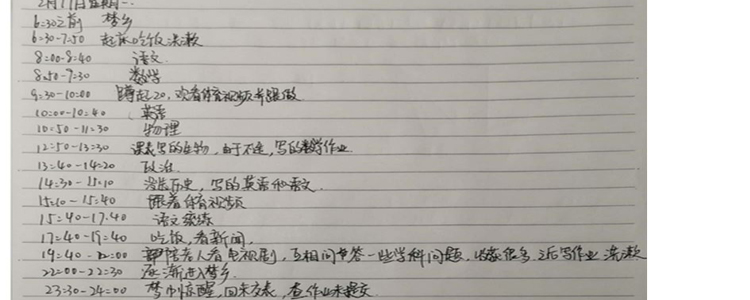 2月17日星期一.
6:30之前 梦乡
6:30-7:50 起床吃饭洗漱
8:00-8:40 语文.
8:50-9:30 数学
9:30-10:00 蹲起20, 观看体育视频并跟做
10:00-10:40 英语
10:50-11:30 物理
12:50-13:30 课表写的生物, 由于不学, 写的数学作业
13:40-14:20 政治.
14:30-15:10 没历史, 写的英语和语文.
15:10-15:40 跟着体育视频
15:40-17:40 语文练
17:40-19:40 吃饭, 看新闻,
19:40-22:00 陪老人看电视剧, 互相问答一些学科问题, 收获很多, 之后写作业 洗漱
22:00-22:30 逐渐进入梦乡
23:30-24:00 梦中惊醒, 回来交表, 查作业未提交.